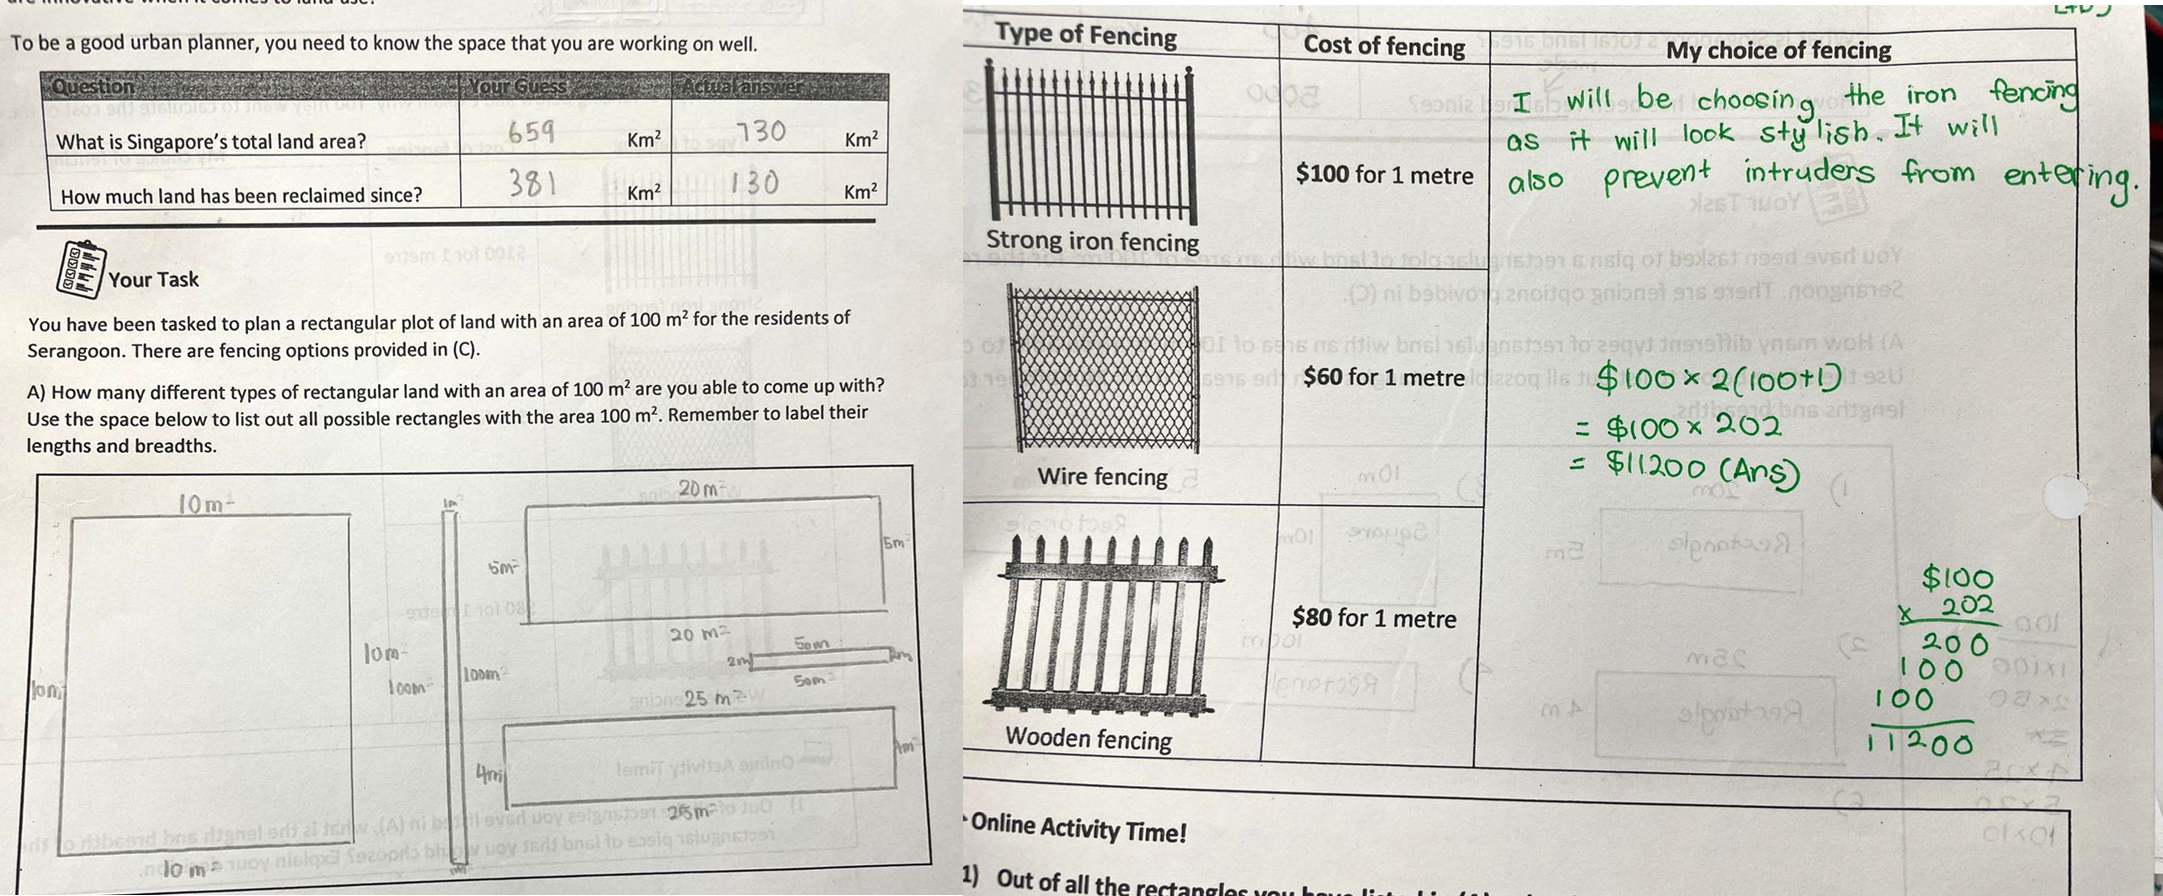 To be a good urban planner, you need to know the space that you are working on well.
Question Your Guess Actual answer
What is Singapore's total land area? 659 Km² 730 Km²
How much land has been reclaimed since? 381 Km² 130 Km²
Your Task
You have been tasked to plan a rectangular plot of land with an area of 100 m² for the residents of
Serangoon. There are fencing options provided in (C).
A) How many different types of rectangular land with an area of 100 m² are you able to come up with?
Use the space below to list out all possible rectangles with the area 100 m². Remember to label their
lengths and breadths.
10m²
10m
10m²
10m²
1m²
100m²
100m²
20m²
5m²
5m²
20m²
50m
2m
2m
50m²
25m²
4m
4m²
25m²
Type of Fencing Cost of fencing My choice of fencing
Strong iron fencing
$100 for 1 metre
I will be choosing the iron fencing
as it will look stylish. It will
also prevent intruders from entering.
Wire fencing
$60 for 1 metre
$100 × 2(100+1)
= $100 × 202
= $11200 (Ans)
Wooden fencing
$80 for 1 metre
$100
x 202
200
100
100
11200
Online Activity Time!
1) Out of all the rectangles you have listed in